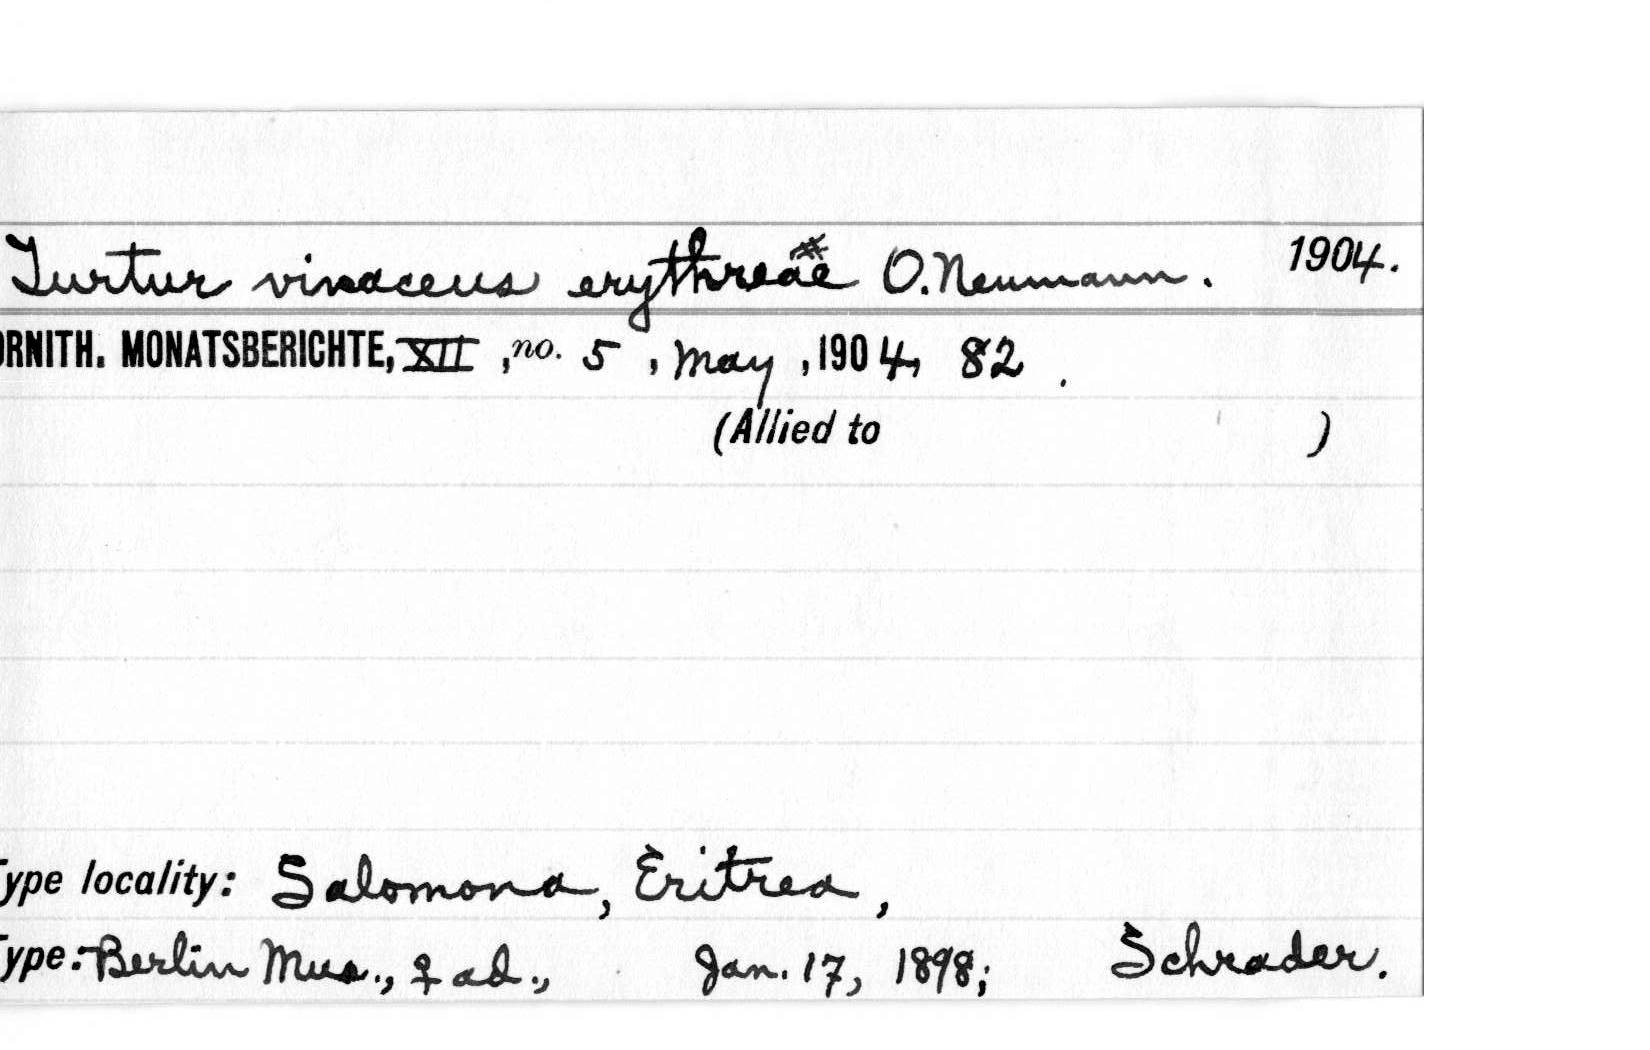 Turtur vinaceus erythreae O. Neumann. 1904.
ORNITH. MONATSBERICHTE, XII, no. 5, May, 1904, 82.
(Allied to )
Type locality: Salomona, Eritrea,
Type: Berlin Mus., ♀ ad., Jan. 17, 1898; Schrader.